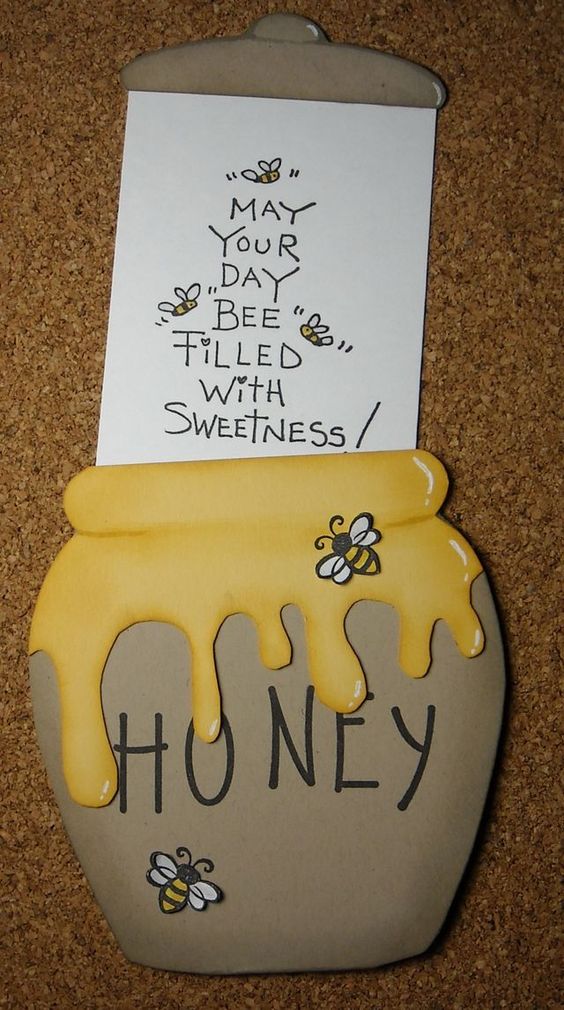 MAY
YOUR
DAY
"BEE"
FiLLED
WiTH
SWEETNESS!
HONEY